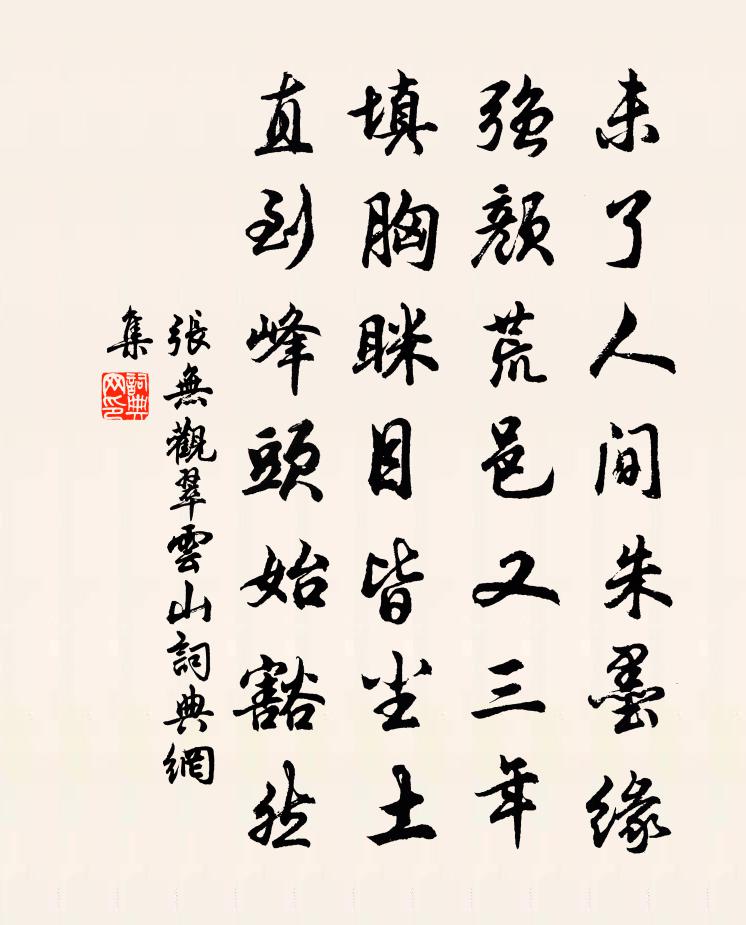 未了人间朱墨缘
强颜荒邑又三年
填胸眯目皆尘土
直到峰頭始豁然
張無觀翠雲山詞典網
集
詞典
网印